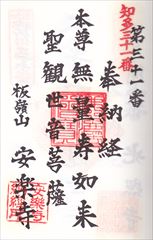 第三十一番
知多三十一番
奉納経
本尊無量寿如来
聖観世音菩薩
板嶺山 安楽寺